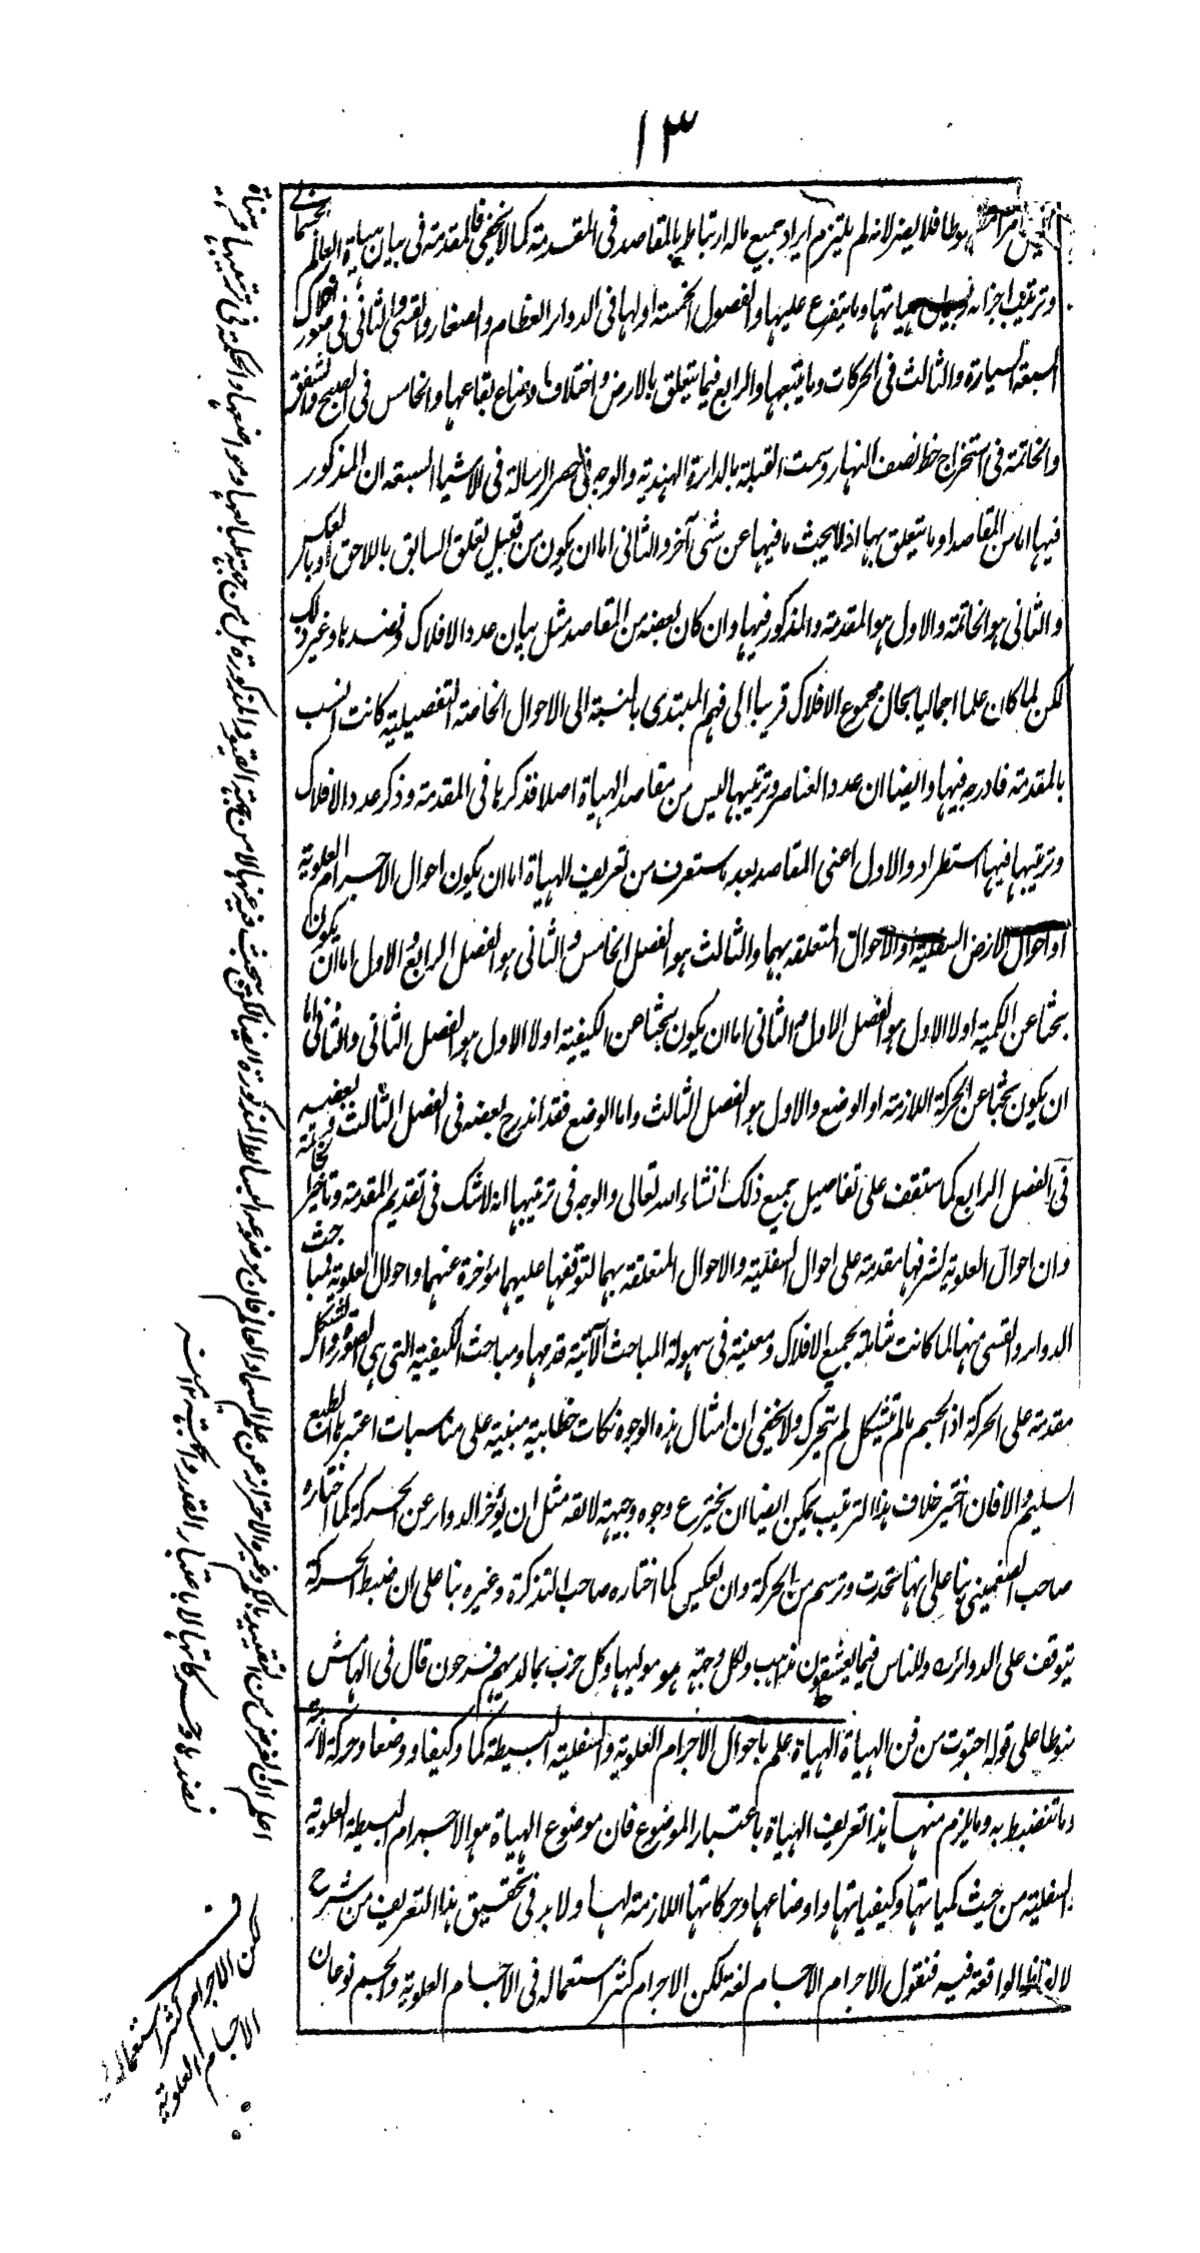 ١٣
بوطا فلا يضر لانه لم يلتزم ايراد جميع ماله ارتباط بالمقاصد فى المقدمة كما لا يخفى فالمقدمة فى بيان هياة العالم الجسمانى
وترتيب اجزائه وبيان هياتها وما يتفرع عليها والفصول الخمسة اولها فى الدوائر العظام والصغار والقسى والثانى فى صور افلاك
السبعة السيارة والثالث فى الحركات وما يتبعها والرابع فيما يتعلق بالارض واختلاف اوضاع بقاعها والخامس فى الصبح والشفق
والخاتمة فى استخراج خط نصف النهار وسمت القبلة بالدائرة الهندية والوجه فى حصر الرسالة فى الاشياء السبعة ان المذكور
فيها اما من المقاصد او ما يتعلق بها اذ لا يبحث ما فيها عن شئ آخر والثانى اما ان يكون من قبيل تعلق السابق باللاحق او بالعكس
والثانى هو الخاتمة والاول هو المقدمة والمذكور فيها وان كان بعضه من المقاصد مثل بيان عدد الافلاك ونضدها وغير ذلك
لكن لما كان علما اجماليا بحال مجموع الافلاك قريبا الى فهم المبتدى بالنسبة الى الاحوال الخاصة التفصيلية كانت انسب
بالمقدمة فادرجه فيها وايضا ان عدد العناصر وترتيبها ليس من مقاصد الهياة اصلا فذكرها فى المقدمة وذكر عدد الافلاك
وترتيبها فيها استطراد والاول اعنى المقاصد بعد ما ستعرف من تعريف الهياة اما ان يكون احوال الاجرام العلوية
او احوال الارض السفلية او الاحوال المتعلقة بهما والثالث هو الفصل الخامس والثانى هو الفصل الرابع والاول اما ان يكون
بحثا عن الكمية اولا الاول هو الفصل الاول والثانى اما ان يكون بحثا عن الكيفية اولا الاول هو الفصل الثانى والثانى اما
ان يكون بحثا عن الحركة اللازمة او الوضع والاول هو الفصل الثالث واما الوضع فقد اندرج بعضه فى الفصل الثالث وبعضه
فى الفصل الرابع كما ستقف على تفاصيل جميع ذلك انشاء الله تعالى والوجه فى ترتيبها انه لا شك فى تقديم المقدمة وتاخير الخاتمة
وان احوال العلوية لشرفها مقدمة على احوال السفلية والاحوال المتعلقة بهما لتوقفها عليهما مؤخرة عنهما واحوال العلوية فمباحث
الدوائر والقسى منها لما كانت شاملة بجميع الافلاك ومعينة فى سهولة المباحث الآتية قدمها ومباحث الكيفية التى هى الصور والشكل
مقدمة على الحركة اذ الجسم ما لم يتشكل لم يتحرك ولا يخفى ان امثال هذه الوجوه نكات خطابية مبنية على مناسبات اعتبرها الطبع
السليم والا فان اختير خلاف هذا الترتيب يمكن ايضا ان يخترع وجوه وجيهة لائقة مثل ان يؤخر الدوائر عن الحركة كما اختاره
صاحب الچغمينى بناء على انها تحدث وترسم من الحركة وان يعكس كما اختاره صاحب التذكرة وغيره بناء على ان ضبط الحركة
يتوقف على الدوائر وللناس فيما يعشقون مذاهب ولكل وجهة هو موليها وكل حزب بما لديهم فرحون قال فى الهامش
منوطا على قوله احتوت من فن الهياة الهياة علم باحوال الاجرام العلوية والسفلية البسيطة كما وكيفا ووضعا وحركة لازمة
وما تنضبط به وما يلزم منها هذا تعريف الهياة باعتبار الموضوع فان موضوع الهياة هو الاجرام البسيطة العلوية
والسفلية من حيث كمياتها وكيفياتها واوضاعها وحركاتها اللازمة لها ولا بد فى تحقيق هذا التعريف من شرح
الالفاظ الواقعة فيه فنقول الاجرام الاجسام لغة لكن الاجرام كثر استعماله فى الاجسام العلوية والجسم نوعان
اعلم ان الغرض من التقييد بالكم وغيره الاحتراز عن علم السماء والعالم فان موضوعه البسائط المذكورة ايضا لكن يبحث فيه عنها لا من جهة القيود المذكورة بل من جهة طبايعها ومواضعها والحكمة فى ترتيبها
نضدها وحركاتها لا باعتبار القدر والجهة ١٢ منه
لكن الاجرام كثر استعماله فى
الاجسام العلوية